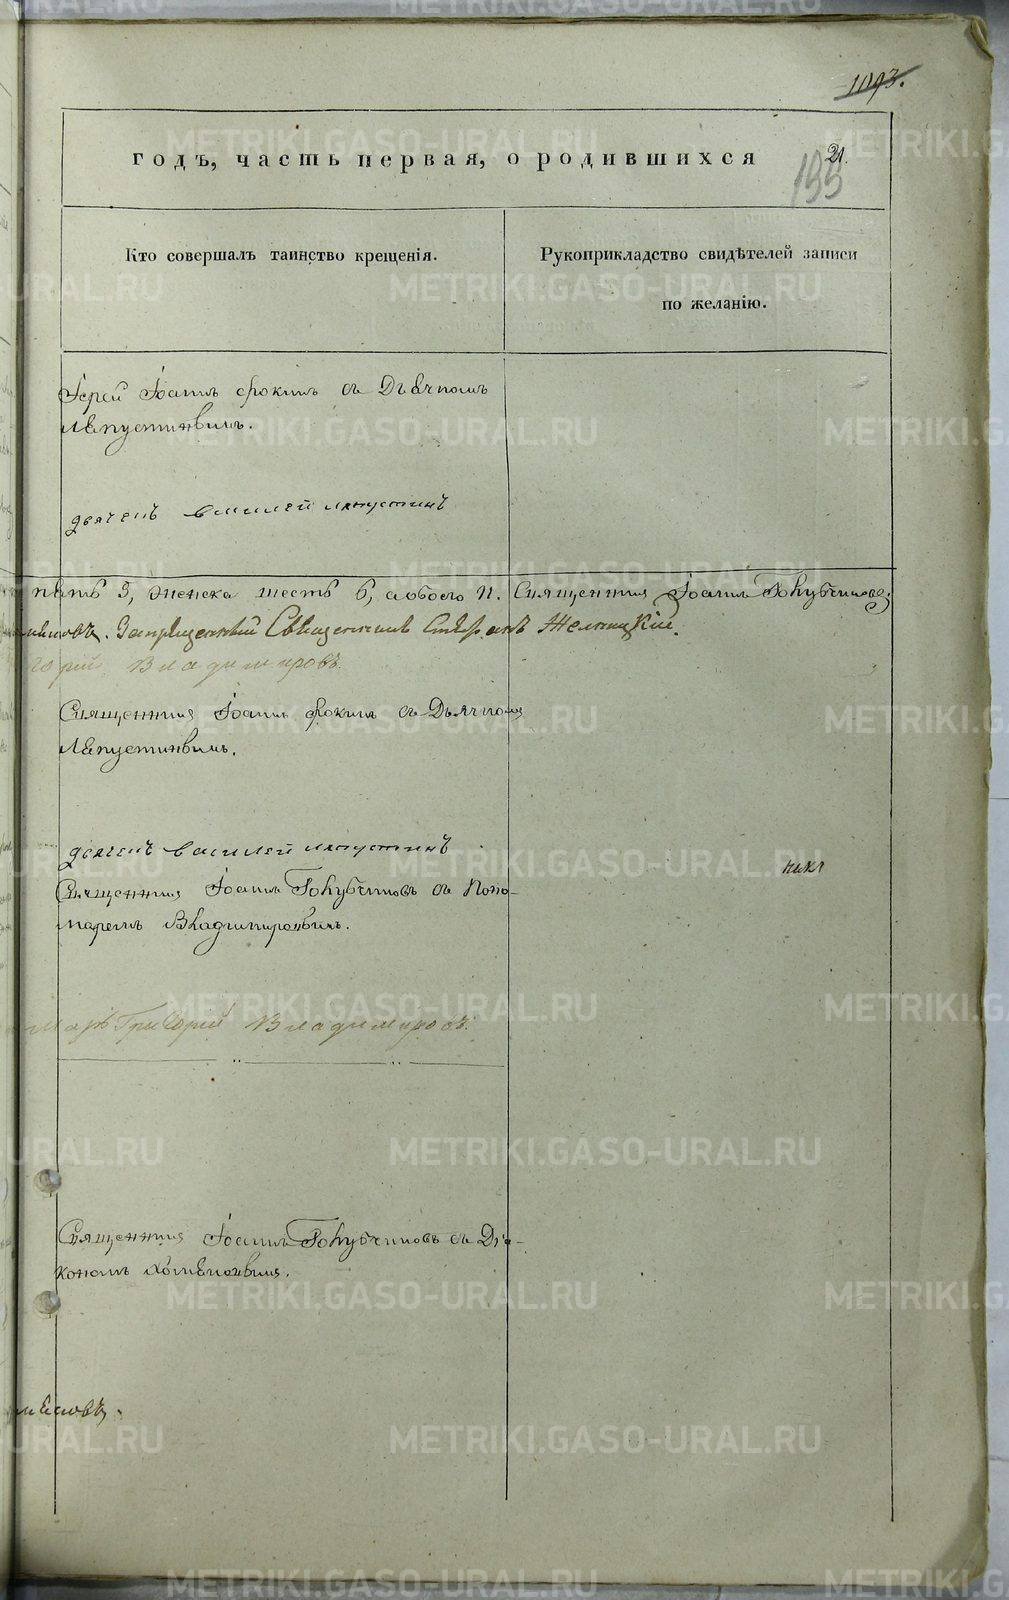 1093.
годъ, часть первая, о родившихся
21.
Кто совершалъ таинство крещенія.
Рукоприкладство свидѣтелей записи
по желанію.
Іерей Іоаннъ Фокинъ съ Дьячкомъ
Лапустинымъ.
дьячекъ василей лапустинъ
пять 5, женска шесть 6, а обоего 11. Священникъ Іоаннъ Голубчиковъ;
Запрещенный Священникъ Стефанъ Желницкій.
горій Владимировъ
Священникъ Іоаннъ Фокинъ съ Дьячкомъ
Лапустинымъ.
дьячекъ василей лапустинъ
Священникъ Іоаннъ Голубчиковъ съ Поно-
маремъ Владимировымъ.
марь Григорей Владимировъ
Священникъ Іоаннъ Голубчиковъ съ Діа-
кономъ
METRIKI.GASO-URAL.RU